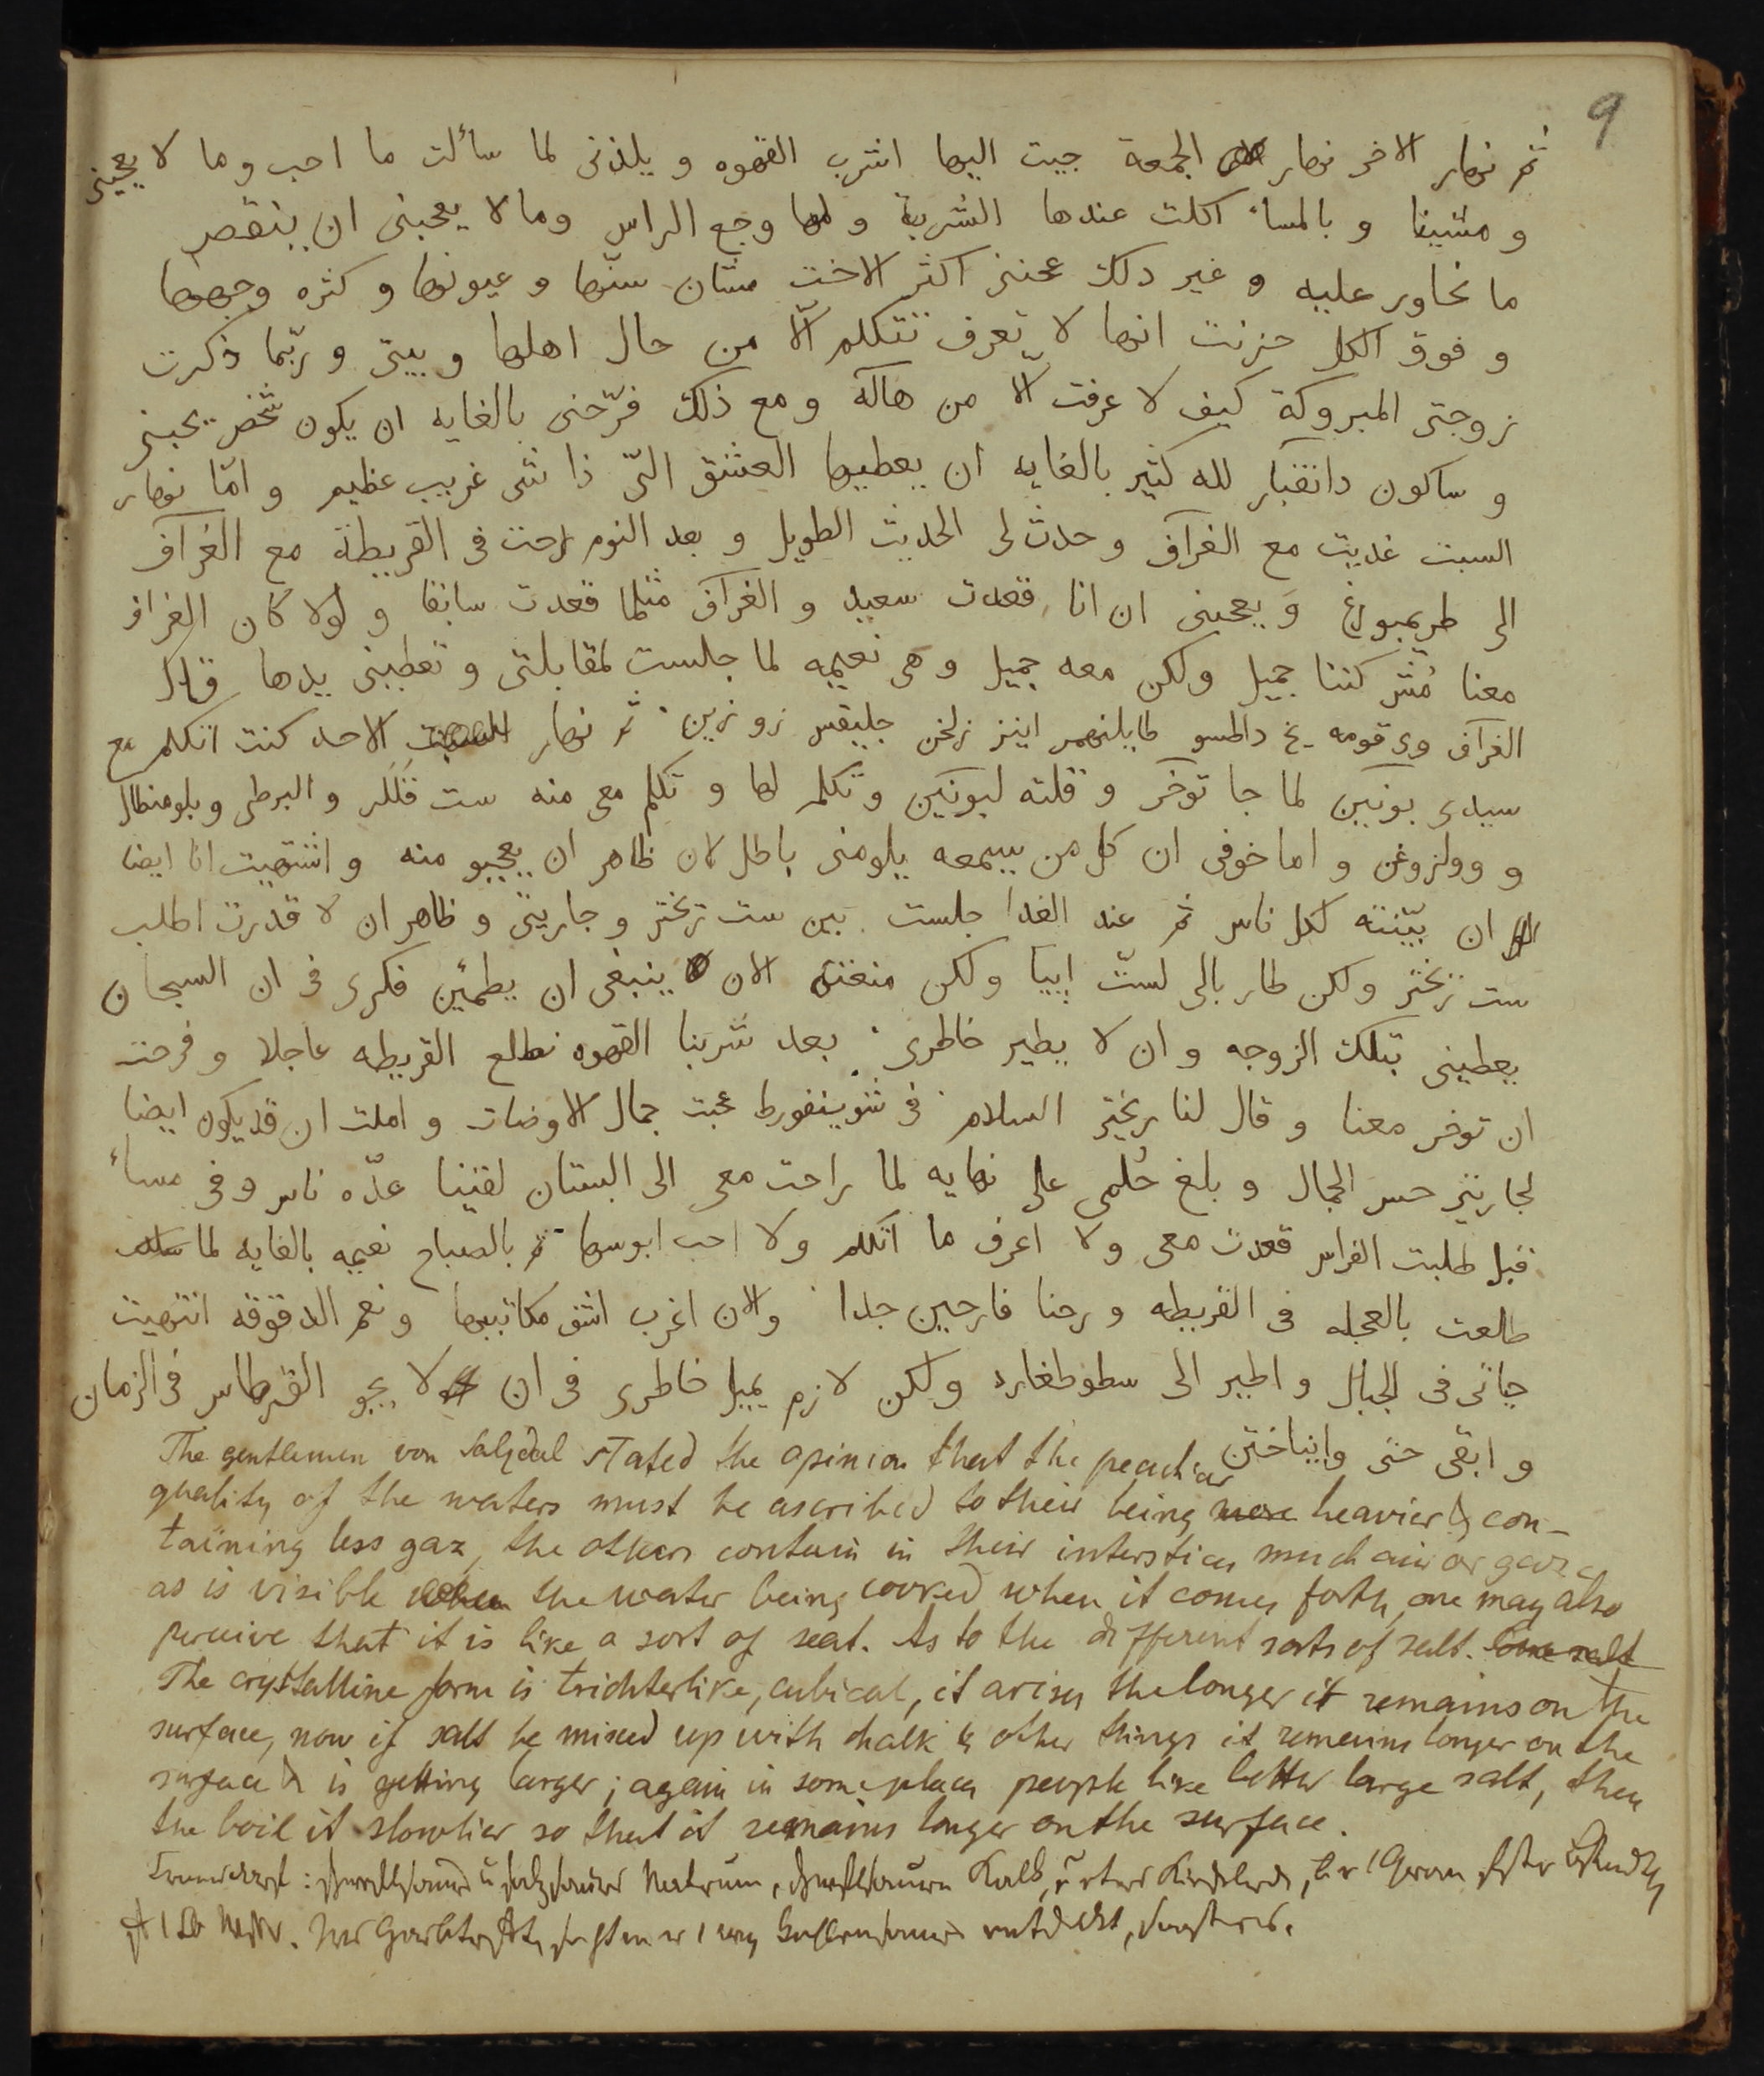 9
ثم نهار الاخر نهار الجمعة جيت اليها اشرب القهوه و يلذنى لما سألت ما احب وما لا يعجبنى
و مشينا و بالمساء اكلت عندها الشربة و لها وجع الراس وما لا يعجبنى ان ينقصر
ما نحاور عليه و غير دلك عجبنى اكثر الاخت مشان سنّها و عيونها و كثره وجهها
و فوق الكل حزنت انها لا تعرف تتكلم الّا من حال اهلها و بيتى و ربّما ذكرت
زوجتى المبروكة كيف لا عرفت الّا من هاكه و مع ذلك فرّحنى بالغايه ان يكون شخص يحبنى
و ساكون دانقبار لله كثير بالغايه ان يعطيها العشق الّتى ذا شى غريب عظيم و امّا نهار
السبت غديت مع الغرآف و حدث لى الحديث الطويل و بعد النوم رحت فى القريطة مع الغرآف
الى طريمبورغ و يعجبنى ان انا قعدت سعيد و الغرآف مثلما قعدت سابقا و لولا كان الغراف
معنا مُش كتنا جميل ولكن معه جميل وهى نعيمه لما جلست لمقابلتى و تعطينى يدها قال
الغرآف وى قومه يخ داطسو طايلنهمر اينز زلخن جليقس زو زين ثم نهار الاحد كنت اتكلم مع
سيدى بونيين لما جا توخر و قلته ليونكين و تكلم لها و تكلم معى منه ست قللر و البرطى و بلومنطال
و وولزوغن و اما خوفى ان كل من يسمعه يلومنى باطل لان ظاهر ان يعجبو منه و اشتهيت انا ايضا
ان بيّنته لكل ناس ثم عند الغدا جلست بين ست تريختر و جاريتى و ظاهر ان لا قدرت اطلب
ست تريختر ولكن طار بالى لستّ إيبا ولكن منعنى الان ينبغى ان يطمئن فكرى فى ان السبحان
يعطينى تبلك الزوجه و ان لا يطير خاطرى بعد شربنا القهوه نطلع القريطه عاجلا و فرحت
ان توخر معنا و قال لنا ريختر السلام فى شوينفورط عجبت جمال الاوضات و املت ان قد يكون ايضا
لجاريتى حس الجمال و بلغ حُلمى على نهايه لما راحت معى الى البستان لقينا عدّه ناس و فى مساء
قبل طلبت الفراس قعدت معى ولا اعرف ما اتكلم ولا احب ابوسها ثم بالصباح نعيمه بالغايه لما
طلعت بالعجله فى القريطه و رحنا فارحين جدا والان اغرب اشق مكاتيبها و نعم الدقوقه انتهيت
جيأتى فى الجبال و اطير الى سطوطغارد ولكن لازم يميل خاطرى فى ان لا يجو القرطاس فى الزمان
و ابقى حتى واينباختن
The gentlemen von Salzdal stated the opinion that the peculiar
quality of the waters must be ascribed to their being more heavier & con-
taining less gaz, the others contain in their interstices much air or gaze
as is visible when the water being cooked when it comes forth, one may also
perceive that it is like a sort of seat. As to the different sorts of salt. One salt
The crystalline form is trichterlike, cubical, it arises the longer it remains on the
surface, now if salt be mixed up with chalk & other things it remains longer on the
surface & is getting larger; again in some places people like better large salt, then
the boil it slowlier so that it remains longer on the surface.
schwefelsaures u salzsaures Natrum, schwefelsauren Kalk, u etwas Kieselerde,
entdeckt,